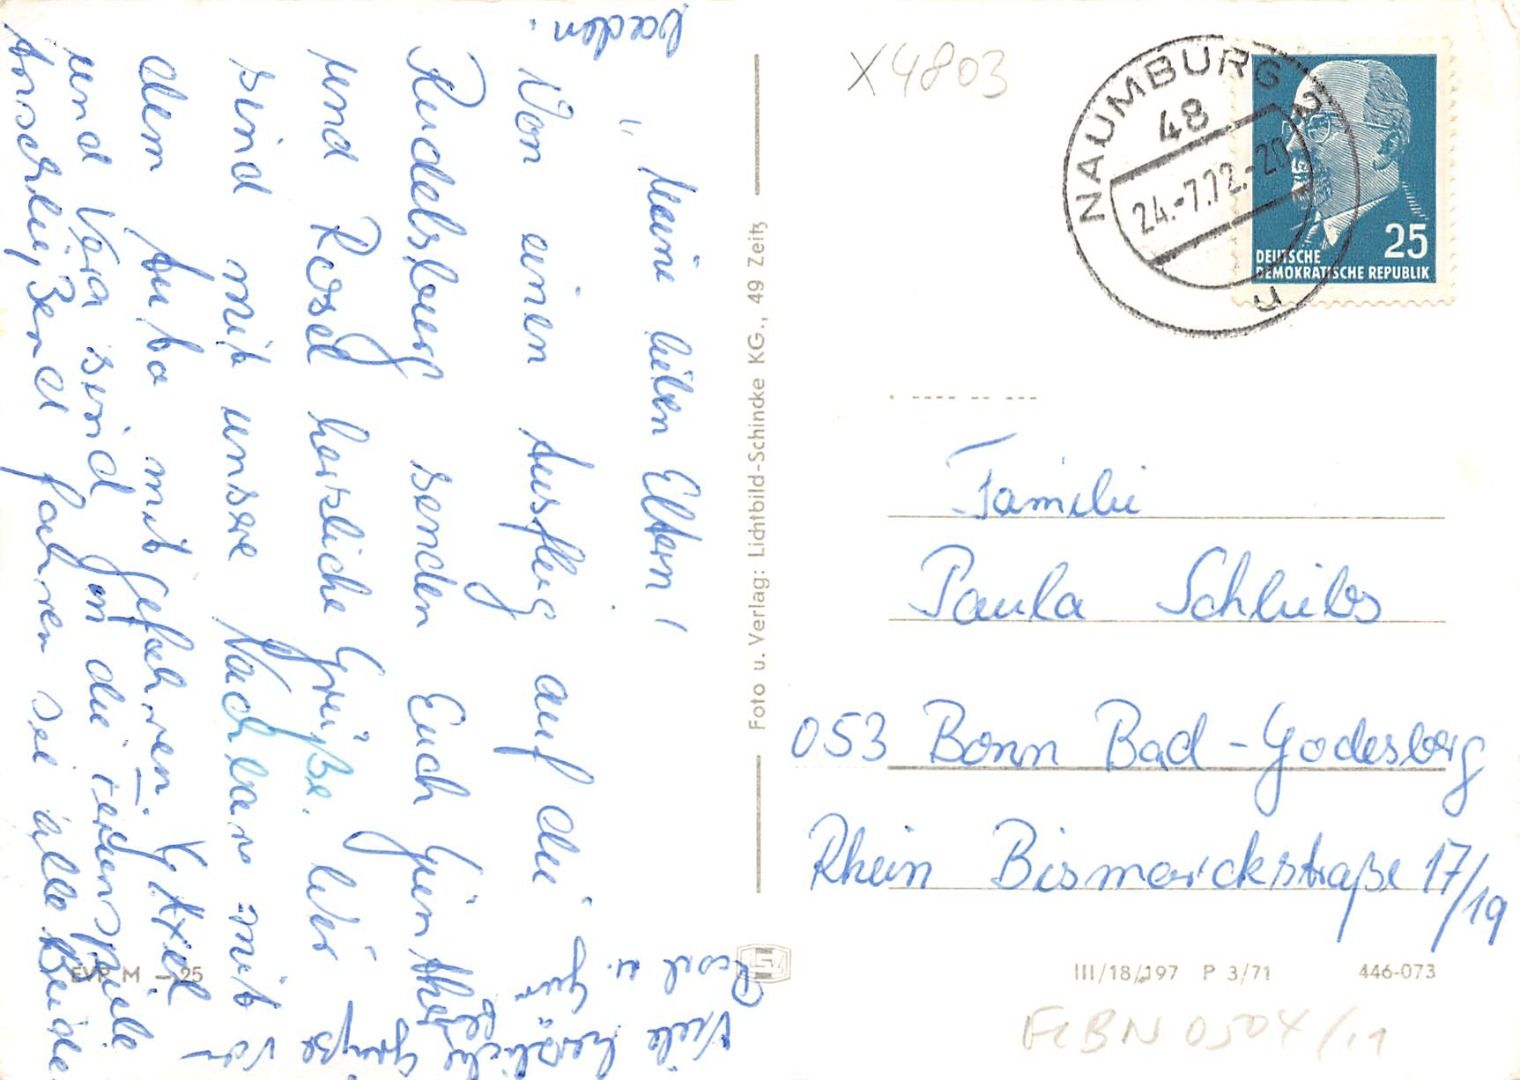 " Meine lieben Eltern!
Von einen Ausflug auf die
Rudelsburg senden Euch Günther
und Rosel herzliche Grüße. Wir
sind mit unsere Nachbarn mit
dem Auto mit gefahren. Axel
und Vera sind in die Ferienspiele
anschließend fahren sie alle Beide
baden.
Viele herzliche Grüße von
Rosel u. Gün
X4803
NAUMBURG 2
48
24.-7.72.-20
u
25
DEUTSCHE
DEMOKRATISCHE REPUBLIK
Familie
Paula Schliebs
053 Bonn Bad-Godesberg
Rhein Bismarckstraße 17/19
Foto u. Verlag: Lichtbild-Schincke KG., 49 Zeitz
EVP M -,25
III/18/197 P 3/71 446-073